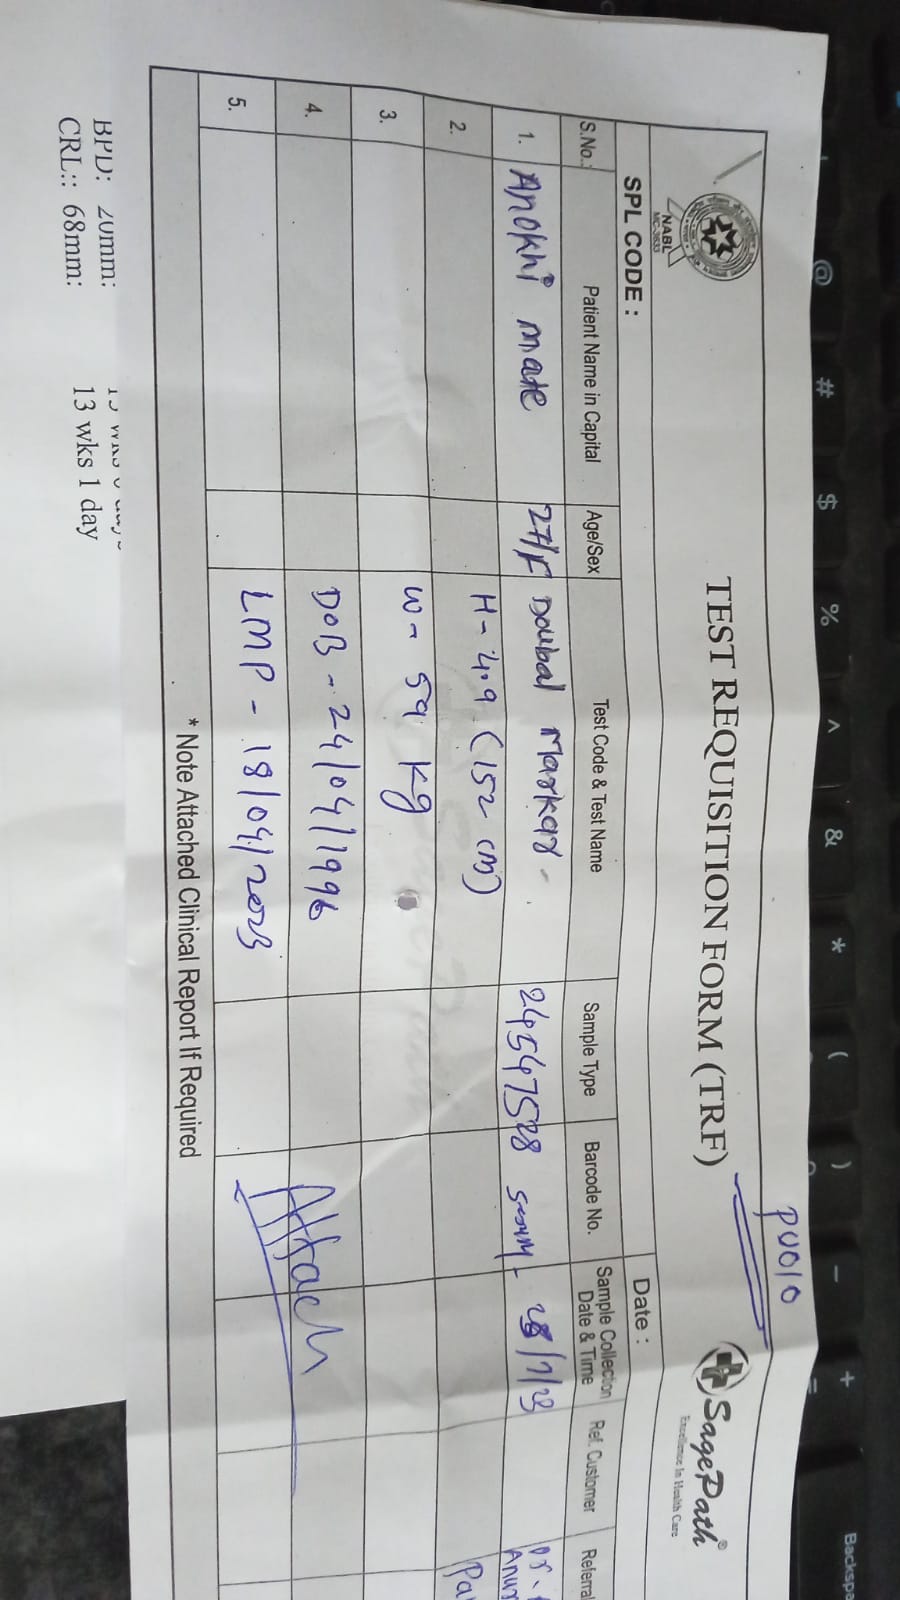 PU010
NABL
MC-3633
TEST REQUISITION FORM (TRF)
SagePath®
Excellence In Health Care
SPL CODE :
Date :
S.No.: Patient Name in Capital Age/Sex Test Code & Test Name Sample Type Barcode No. Sample Collection Date & Time Ref. Customer Referral
1. Anokhi mate 27/F Doubal Markar - 24547528 serum - 28/7/23 Dr.
2. H- 4.9 (152 cm) Pa
3. W- 59 Kg
4. DOB - 24/04/1996
5. LMP - 18/04/2023
Attach
* Note Attached Clinical Report If Required
BPD: 20mm:
CRL:: 68mm: 13 wks 1 day
@ # $ % ^ & * ( ) - + =
Backspa